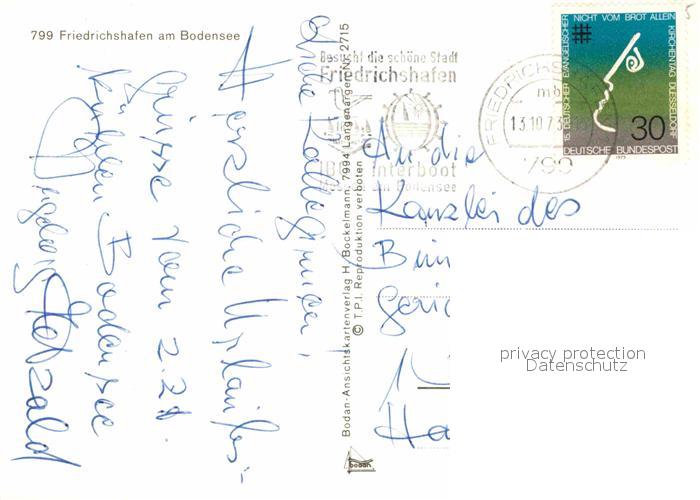 799 Friedrichshafen am Bodensee
Herzliche Urlaubs-
grüsse vom z.Zt.
kühlen Bodensee
Bodan-Ansichtskartenverlag H. Bockelmann, 7994 Langenargen Nr. 2715
© T.P.I. Reproduktion verboten
bodan
Besucht die schöne Stadt
Friedrichshafen
Interboot
am Bodensee
FRIEDRICHSHAFEN
mb
13.10.73
799
15. DEUTSCHER EVANGELISCHER
NICHT VOM BROT ALLEIN
KIRCHENTAG DUESSELDORF
30
DEUTSCHE BUNDESPOST
1973
An die
Kanzlei des
privacy protection
Datenschutz